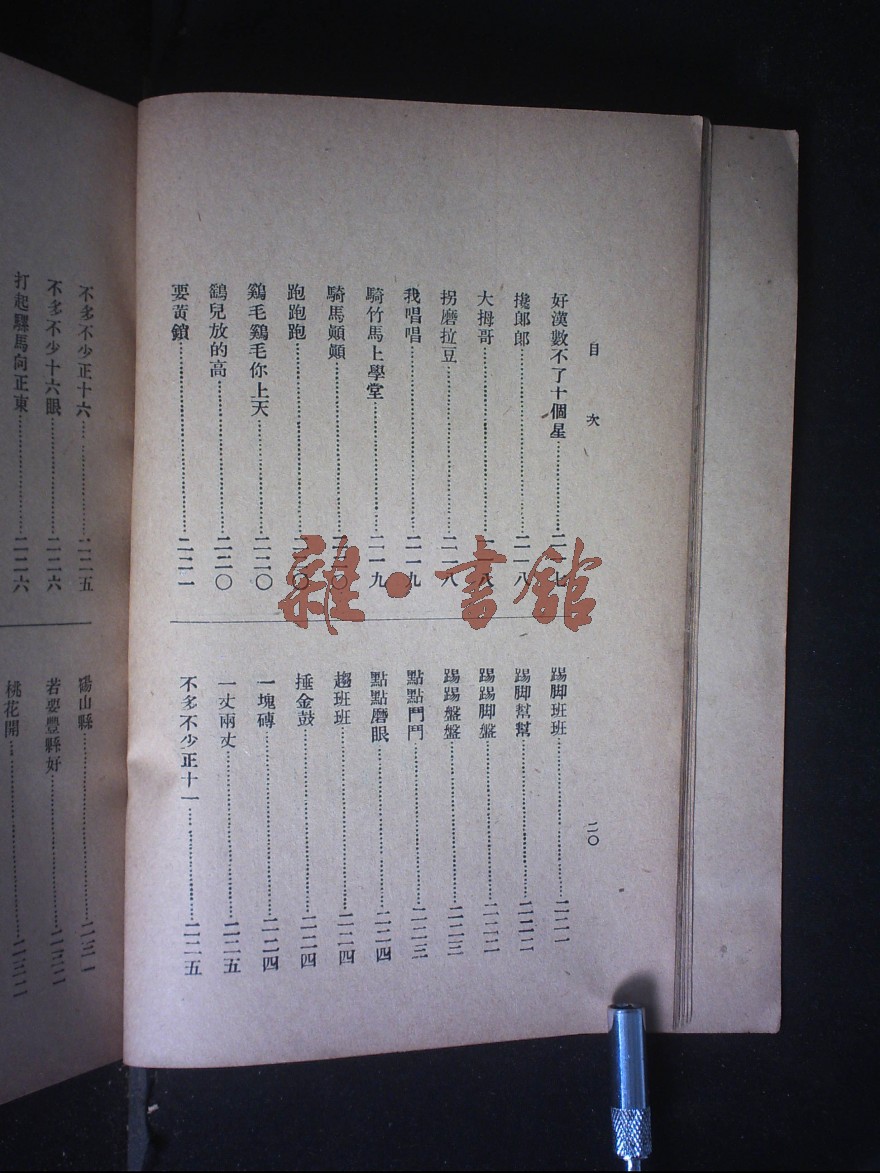 目次
二〇
好漢數不了十個星……二一七
攙郎郎……二一八
大拇哥……二一八
拐磨拉豆……二一八
我唱唱……二一九
騎竹馬上學堂……二一九
騎馬顛顛……二二〇
跑跑跑……二二〇
鷄毛鷄毛你上天……二二〇
鷂兒放的高……二二〇
要黃鎖……二二一
踢脚班班……二二一
踢脚幫幫……二二二
踢踢脚盤……二二二
踢踢盤盤……二二三
點點鬥鬥……二二三
點點磨眼……二二四
趨班班……二二四
捶金鼓……二二四
一塊磚……二二四
一丈兩丈……二二五
不多不少正十一……二二五
不多不少正十六……二二五
不多不少十六眼……二二六
打起騾馬向正東……二二六
碭山縣……二三一
若要豐縣好……二三二
桃花開……二三二
雜·書館